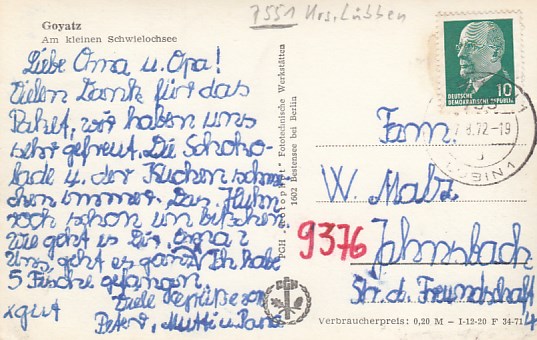 7551 Krs. Lübben
Goyatz
Am kleinen Schwielochsee
Liebe Oma u. Opa!
Vielen Dank für das
Paket, wir haben uns
sehr gefreut. Die Schoko-
lade u. der Kuchen schme-
cken immer. Das Huhn
roch schon um bischen
Wie geht es Dir, Oma?
Uns geht es ganz Ich habe
5 Fische gefangen.
xgut
Viele Grüße von
Peter, Mutti u. Papa
PGH "Fotophot" Fototechnische Werkstätten
1602 Bestensee bei Berlin
PGH
10
DEUTSCHE
DEMOKRATISCHE REPUBLIK
7.8.72-19
Fam.
W. Malz
9376 Jahnsbach
Str. d. Freundschaft
4
Verbraucherpreis: 0,20 M - I-12-20 F 34-71